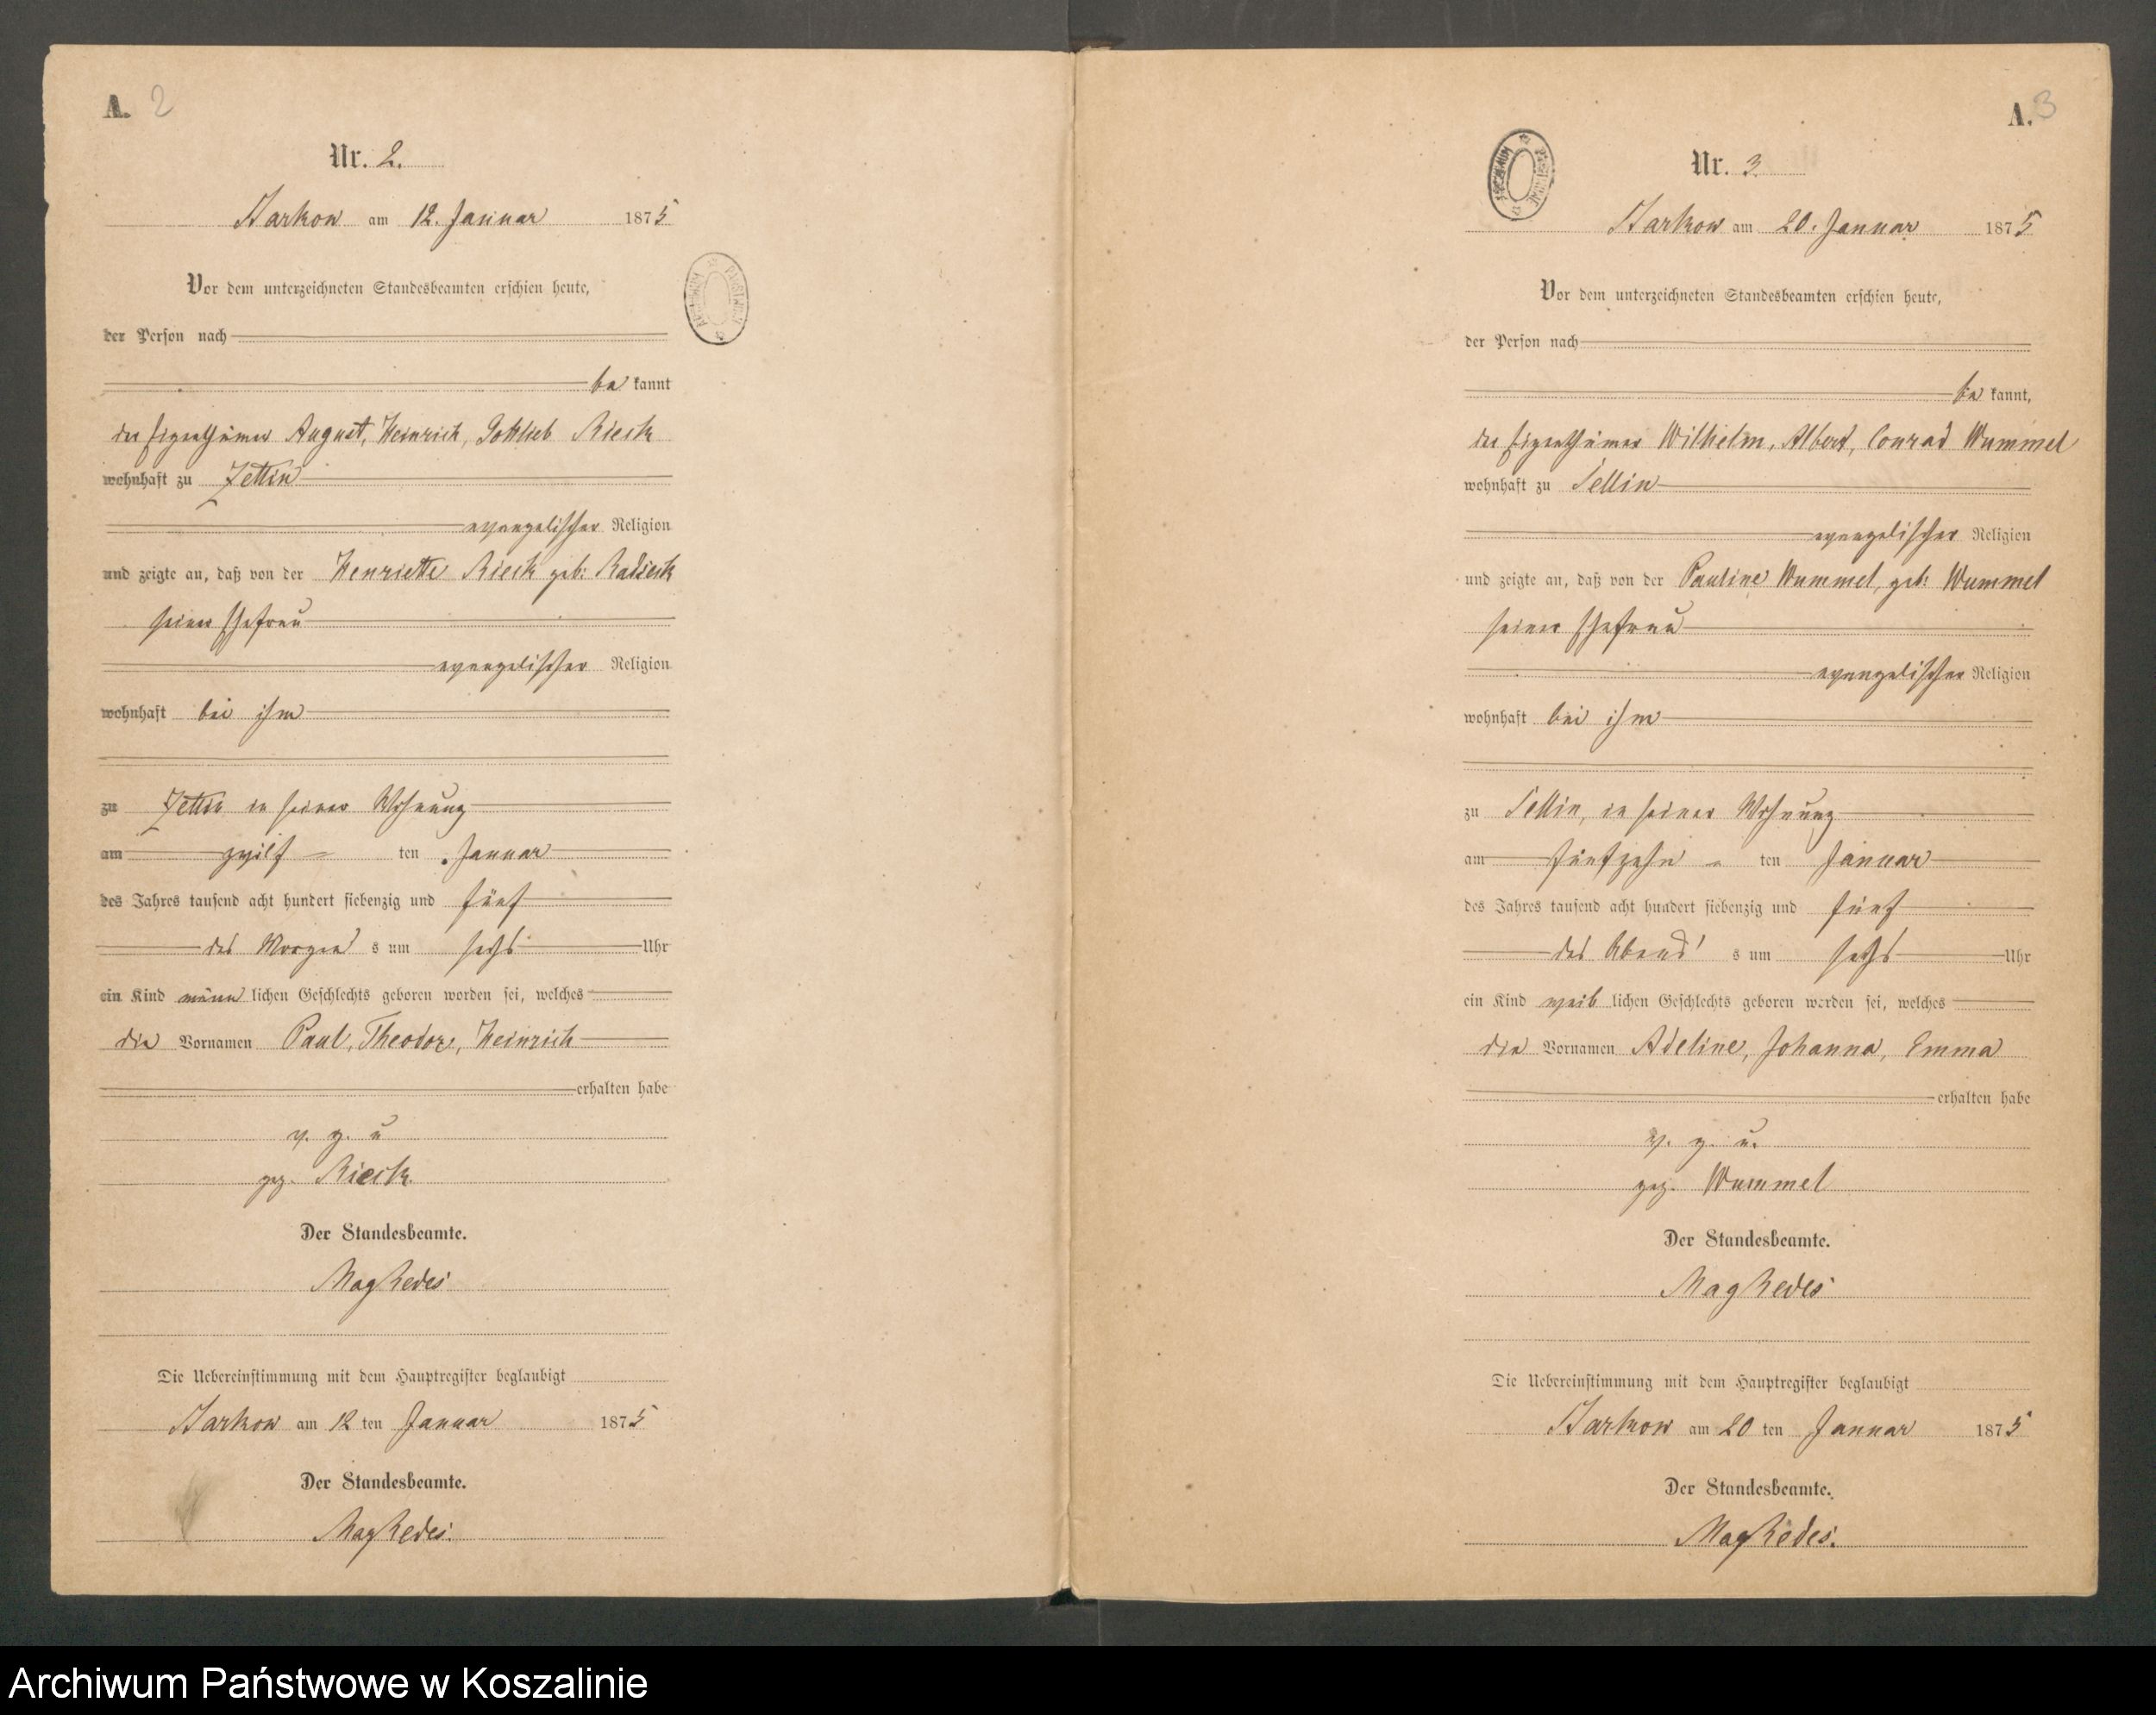 A. 2
Nr. 2.
Starkow am 12. Januar 1875
Vor dem unterzeichneten Standesbeamten erschien heute,
der Person nach
be kannt
der Eigenthümer August, Heinrich, Gottlieb Rieck
wohnhaft zu Zettin
evangelischer Religion
und zeigte an, daß von der Henriette Rieck geb: Radseck
seiner Ehefrau
evangelischer Religion
wohnhaft bei ihm
zu Zettin in seiner Wohnung
am zwölf ten Januar
des Jahres tausend acht hundert siebenzig und fünf
des Morgen s um sechs Uhr
ein Kind männ lichen Geschlechts geboren worden sei, welches
die Vornamen Paul, Theodor, Heinrich
erhalten habe
v. g. u
gez. Rieck.
Der Standesbeamte.
Die Uebereinstimmung mit dem Hauptregister beglaubigt
Starkow am 12 ten Januar 1875
Der Standesbeamte.
A. 3
ARCHIWUM PAŃSTWOWE
Nr. 3
Starkow am 20. Januar 1875
Vor dem unterzeichneten Standesbeamten erschien heute,
der Person nach
be kannt,
der Eigenthümer Wilhelm, Albert, Conrad Wummel
wohnhaft zu Sellin
evangelischer Religion
und zeigte an, daß von der Pauline Wummel, geb: Wummel
seiner Ehefrau
evangelischer Religion
wohnhaft bei ihm
zu Sellin, in seiner Wohnung
am fünfzehn ten Januar
des Jahres tausend acht hundert siebenzig und fünf
des Abend s um sechs Uhr
ein Kind weib lichen Geschlechts geboren worden sei, welches
die Vornamen Adeline, Johanna, Emma
erhalten habe
v. g. u.
gez. Wummel
Der Standesbeamte.
Die Uebereinstimmung mit dem Hauptregister beglaubigt
Starkow am 20 ten Januar 1875
Der Standesbeamte.
Archiwum Państwowe w Koszalinie